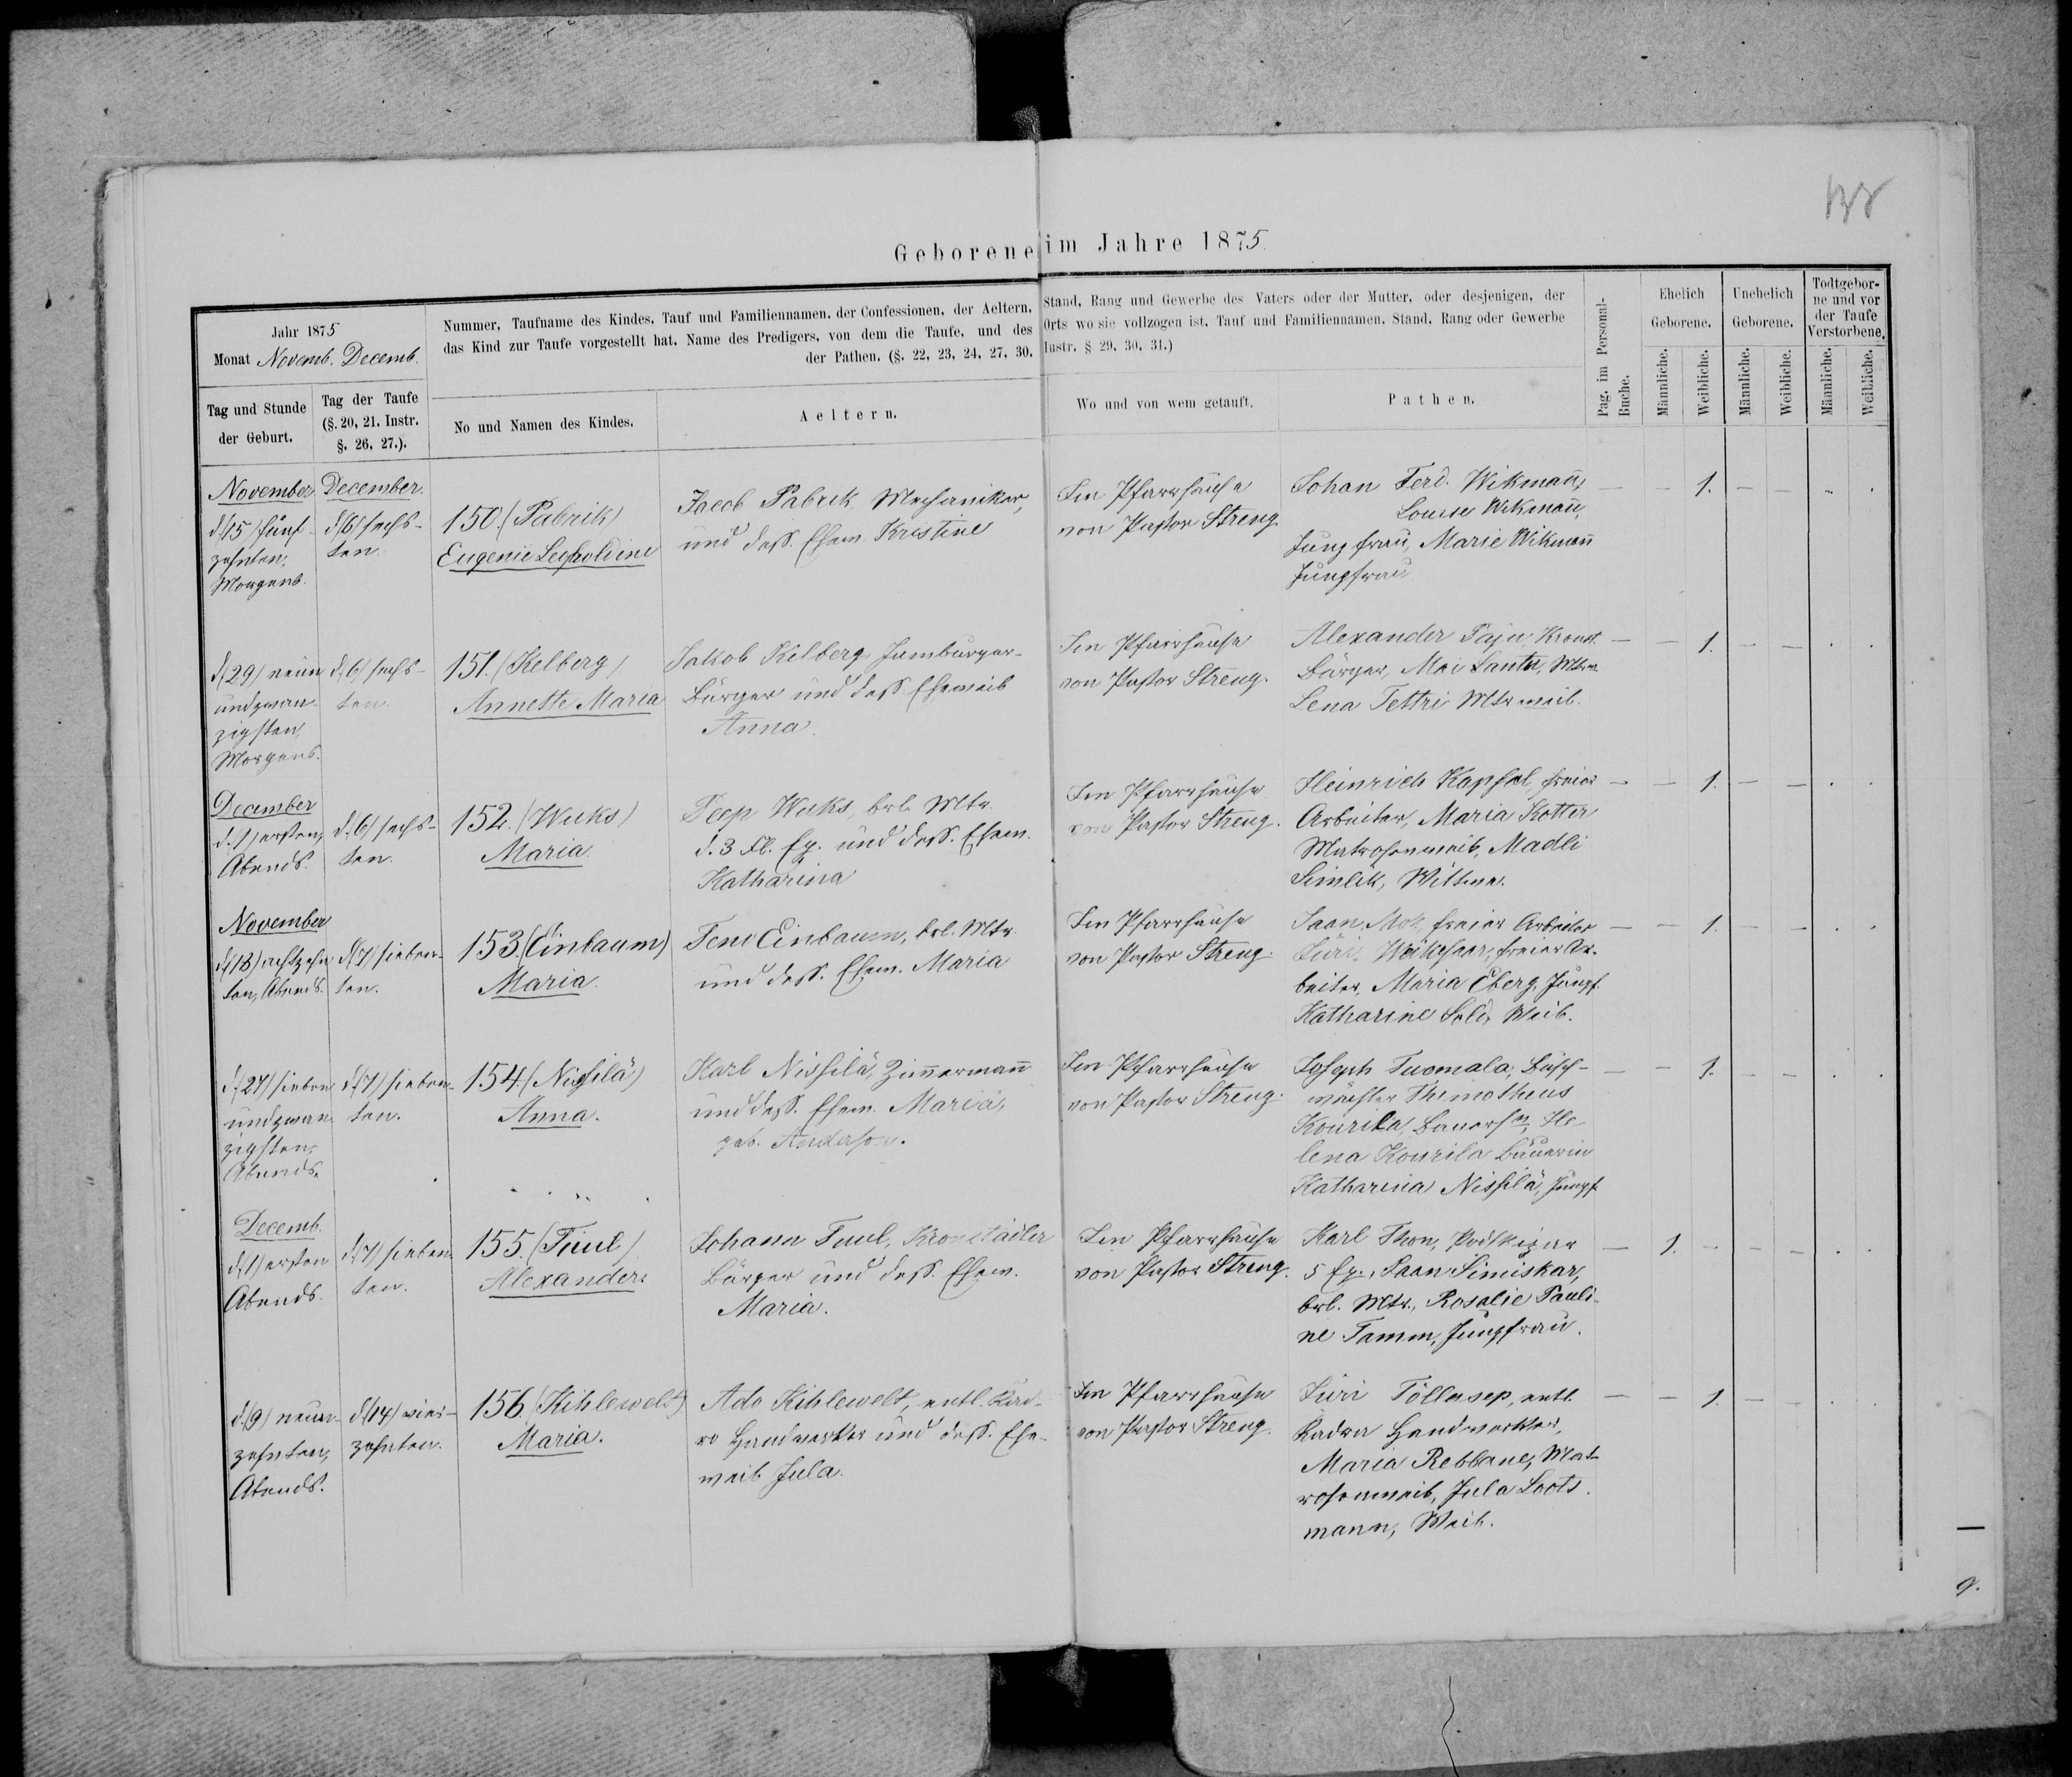 Geborene im Jahre 1875.
Jahr 1875
Monat Novemb. Decemb.
Nummer, Taufname des Kindes, Tauf und Familiennamen, der Confessionen, der Aeltern, Stand, Rang und Gewerbe des Vaters oder der Mutter, oder desjenigen, der
das Kind zur Taufe vorgestellt hat. Name des Predigers, von dem die Taufe, und des Orts wo sie vollzogen ist. Tauf und Familiennamen, Stand, Rang oder Gewerbe
der Pathen. (§. 22, 23, 24, 27, 30. Instr. § 29, 30, 31.)
Tag und Stunde
der Geburt.
Tag der Taufe
(§. 20, 21. Instr.
§. 26, 27.).
No und Namen des Kindes.
Aeltern.
Wo und von wem getauft.
Pathen.
Pag. im Personal-
Buche.
Ehelich
Geborene.
Unehelich
Geborene.
Todtgebor-
ne und vor
der Taufe
Verstorbene.
Männliche.
Weibliche.
Männliche.
Weibliche.
Männliche.
Weibliche.
November
d. (15) fünf-
zehnten,
Morgens.
December.
d. (6) sechs-
ten.
150. (Pabrik)
Eugenie Leopoldine
Jacob Pabrik, Mechaniker,
und dess. Ehew. Kristine
Im Pfarrhause
von Pastor Streng
Johan Ferd. Wikmañ,
Louise Wikmañ,
Jungfrau, Marie Wikmañ
Jungfrau
— — 1. — — .. .
d. (29) neun
undzwan-
zigsten,
Morgens.
d. (6) sechs-
ten.
151. (Kelberg)
Annette Maria
Jakob Kelberg Jamburger-
Bürger und dess Eheweib
Anna.
Im Pfarrhause
von Pastor Streng.
Alexander Paju Kronst.
Bürger, Mai Lantu,
Lena Tettri Mtrweib.
— — 1. — — . .
December
d. (1) ersten,
Abends.
d. (6) sechs-
ten.
152. (Wuks)
Maria.
Peep Wuks, brl. Mtr.
d. 3 Fl. Eq. und dess. Ehew.
Katharina
Im Pfarrhause
von Pastor Streng.
Heinrich Kapfal, freier
Arbeiter, Maria Kotter
Matrosenweib, Madli
Simlik, Wittwe.
— — 1. — — . .
November
d. (18) achtzehn
ten, Abends.
d. (7) sieben-
ten.
153. (Einbaum)
Maria.
Tenno Einbaum, brl. Mtr.
und dess. Ehew. Maria
Im Pfarrhause
von Pastor Streng.
Jaan Mok, freier Arbeiter
Jüri freier Ar-
beiter, Maria Eberg, Jungf.
Katharine Sold. Weib.
— — 1. — — . .
d. (27) sieben
undzwan
zigsten,
Abends.
d. (7) sieben-
ten.
154. (Nissilä)
Anna.
Karl Nissilä, Zim̃ermañ
und dess. Ehew. Maria,
geb. Anderson.
Im Pfarrhause
von Pastor Streng.
Joseph Tuomala, Busch-
wächter Thimotheus
Kourila, Bauers, He-
lena Kourila Bäuerin
Katharina Nissilä, Jungf.
— — 1. — — . .
Decemb.
d. (1) ersten
Abends.
d. (7) sieben-
ten.
155. (Tuul)
Alexander.
Johann Tuul, Kronstädter
Bürger und dess. Ehew.
Maria.
Im Pfarrhause
von Pastor Streng.
Karl Thon, Podskizer
5 Eq., Jaan Simiskar,
brl. Mtr., Rosalie Pauli-
ne Tamm, Jungfrau.
— 1. — — — . .
d. (9) neun-
zehnten,
Abends.
d. (14) vier-
zehnten.
156. (Kihlewelt)
Maria.
Ado Kihlewelt, entl. Kad-
re Handwerker und dess. Ehe-
weib Jula.
Im Pfarrhause
von Pastor Streng.
Jüri Töllasep, entl.
Kadre Handwerker,
Maria Rebbane, Mat-
rosenweib, Jula Loots
mann, Weib.
— — 1. — . . .